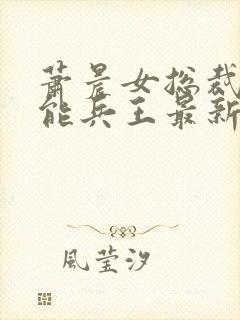 萧晨女总裁
能兵王最新
风莹汐